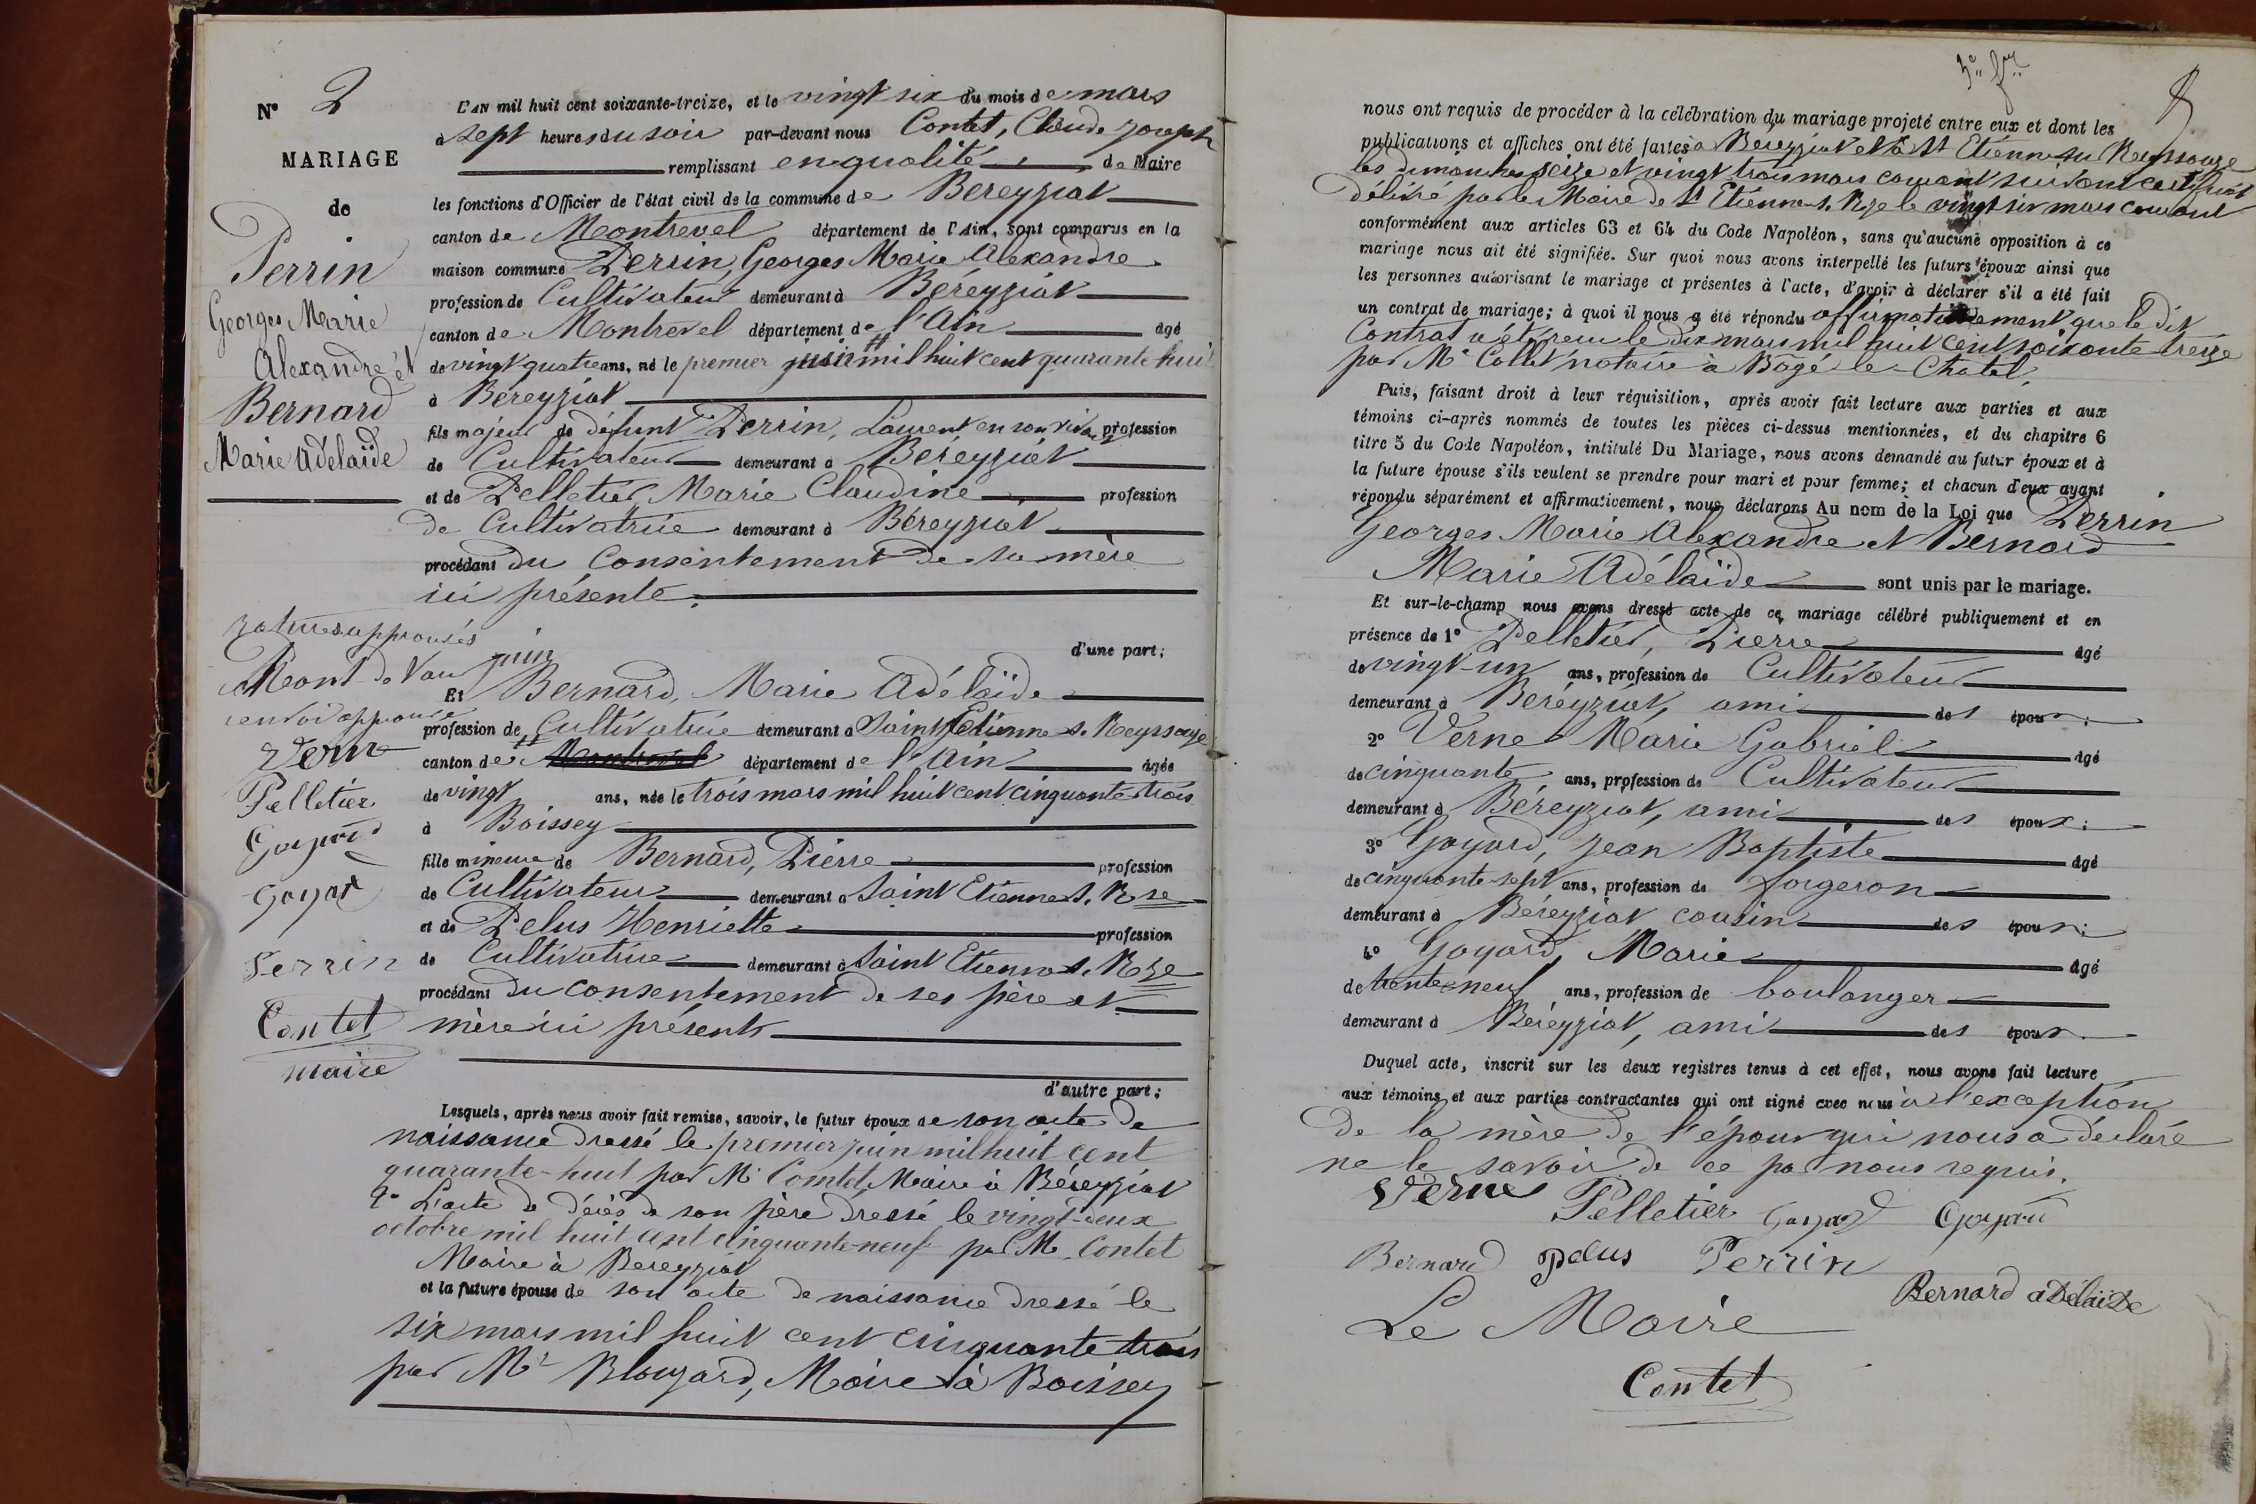 N° 2
MARIAGE
de
Perrin
Georges Marie
Alexandre et
Bernard
Marie Adélaïde
ratures approuvés
Pont de Vaux juin
renvoi approuvé
Verne
Pelletier
Goyard
Goyard
Perrin
Contet
maire
L'AN mil huit cent soixante-treize, et le vingt six du mois de mars
à sept heures du soir par-devant nous Contet, Claude Joseph
remplissant en qualité de Maire
les fonctions d'Officier de l'état civil de la commune de Bereyziat
canton de Montrevel département de l'Ain, sont comparus en la
maison commune Perrin, Georges Marie Alexandre
profession de Cultivateur demeurant à Béréyziat
canton de Montrevel département de l'Ain âgé
de vingt quatre ans, né le premier juin mil huit cent quarante huit
à Bereyziat
fils majeur de défunt Perrin, Laurent en son vivant profession
de Cultivateur demeurant à Béréyziat
et de Pelletier Marie Claudine profession
de Cultivatrice demeurant à Béreyziat
procédant du consentement de sa mère
ici présente.
d'une part;
Et Bernard, Marie Adélaïde
profession de Cultivatrice demeurant à Saint Etienne s. Reyssouze
canton de département de l'Ain âgée
de vingt ans, née le trois mars mil huit cent cinquante trois
à Boissey
fille mineure de Bernard, Pierre profession
de Cultivateur demeurant à Saint Etienne s. R se
et de Pelus Henriette profession
de Cultivatrice demeurant à Saint Etienne s. R ze
procédant du consentement de ses père et
mère ici présents
d'autre part;
Lesquels, après nous avoir fait remise, savoir, le futur époux de son acte de
naissance dressé le premier juin mil huit cent
quarante-huit par Mr Comtet Maire à Béreyziat
2° L'acte de décès de son père dressé le vingt-deux
octobre mil huit cent cinquante-neuf par M. Contet
Maire à Bereyziat
et la future épouse de son acte de naissance dressé le
six mars mil huit cent cinquante trois
par Mr Blouzard, Maire à Boissey
nous ont requis de procéder à la célébration du mariage projeté entre eux et dont les
publications et affiches ont été faites à Béreyziat et à St Etienne su Reyssouze
les dimanches seize et vingt trois mars courant suivant certificat
délivré par le Maire de St Etienne s. Rze le vingt six mars courant
conformément aux articles 63 et 64 du Code Napoléon, sans qu'aucune opposition à ce
mariage nous ait été signifiée. Sur quoi nous avons interpellé les futurs époux ainsi que
les personnes autorisant le mariage et présentes à l'acte, d'avoir à déclarer s'il a été fait
un contrat de mariage; à quoi il nous a été répondu affirmativement que le dit
Contrat a été reçu le dix mars mil huit cent soixante treize
par Me Collet notaire à Bâgé-le-Châtel.
Puis, faisant droit à leur réquisition, après avoir fait lecture aux parties et aux
témoins ci-après nommés de toutes les pièces ci-dessus mentionnées, et du chapitre 6
titre 5 du Code Napoléon, intitulé Du Mariage, nous avons demandé au futur époux et à
la future épouse s'ils veulent se prendre pour mari et pour femme; et chacun d'eux ayant
répondu séparément et affirmativement, nous déclarons Au nom de la Loi que Perrin
Georges Marie Alexandre et Bernard
Marie Adélaïde sont unis par le mariage.
Et sur-le-champ nous avons dressé acte de ce mariage célébré publiquement et en
présence de 1° Pelletier, Pierre âgé
de vingt-un ans, profession de Cultivateur
demeurant à Beréyziat, ami des époux;
2° Verne Marie Gabriel âgé
de cinquante ans, profession de Cultivateur
demeurant à Béreyziat, ami des époux;
3° Goyard, Jean Baptiste âgé
de cinquante-sept ans, profession de forgeron
demeurant à Béreyziat cousin des époux;
4° Goyard, Marie âgé
de trente-neuf ans, profession de boulanger
demeurant à Béreyziat, ami des époux.
Duquel acte, inscrit sur les deux registres tenus à cet effet, nous avons fait lecture
aux témoins et aux parties contractantes qui ont signé avec nous à l'exception
de la mère de l'époux qui nous a déclaré
ne le savoir de ce par nous requis.
Verne Pelletier Goyard Goyard
Bernard Pelus Perrin
Bernard adélaïde
Le Maire
Contet